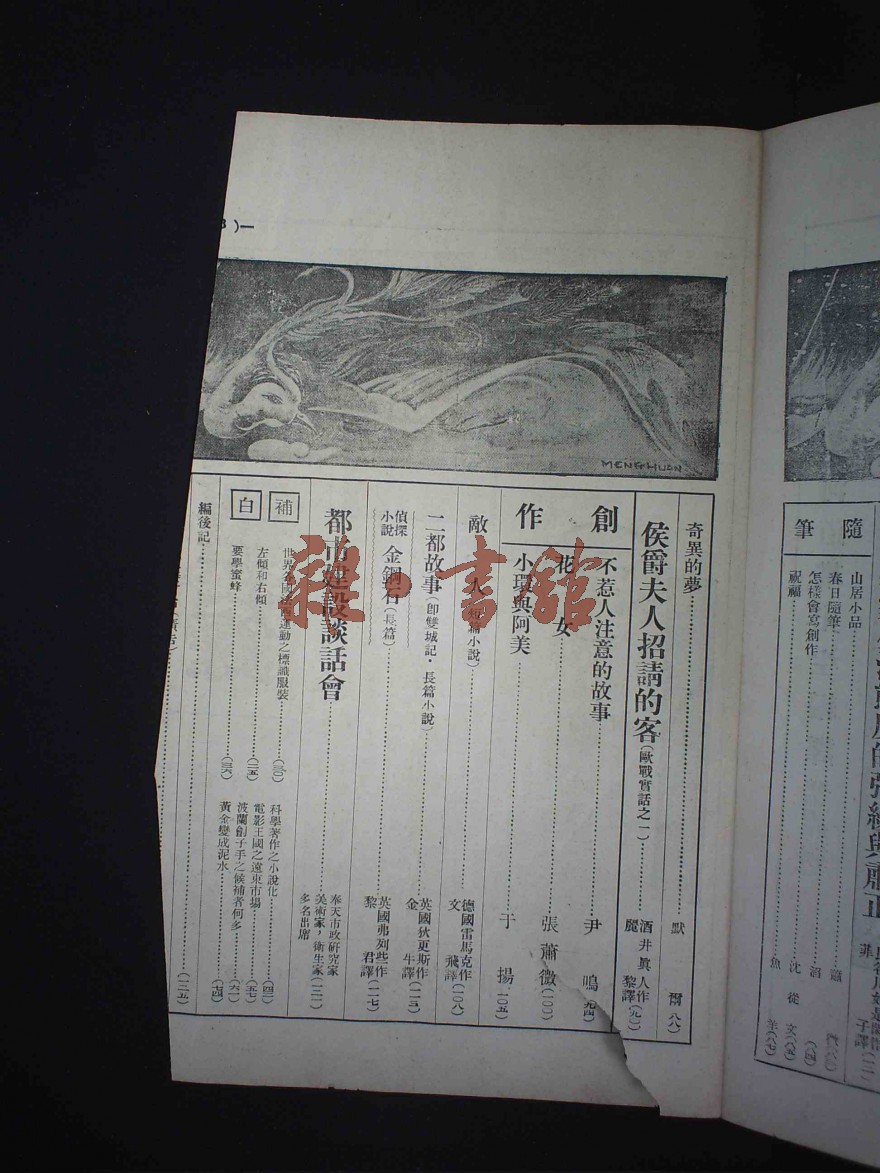 隨筆
山居小品
春日隨筆
怎樣會寫創作 沈從文(八五)
祝福 魚羊(八七)
奇異的夢 默爾(八八)
侯爵夫人招請的客(歐戰實話之一) 酒井眞人作 麗黎譯(九〇)
創作
不惹人注意的故事 尹鳴(九四)
花女 張蕭微(一〇〇)
小環與阿美 于揚(一〇五)
敵人(短篇小說) 德國雷馬克作 文飛譯(一〇八)
二都故事(卽雙城記·長篇小說) 英國狄更斯作 金牛譯(一一三)
偵探小說 金鋼石(長篇) 英國弗列些作 黎君譯(一一七)
都市建設談話會 奉天市政研究家 美術家,衛生家 多名出席(一二一)
補白
世界各國法西運動之標識服裝(三〇)
左傾和右傾(二五)
要學蜜蜂(三六)
科學著作之小說化(四一)
電影王國之遠東市場(五七)
波蘭劊子手之候補者何多(六一)
黃金變成泥水(七四)
編後記(一二五)
MENGHUAN
雜·書館